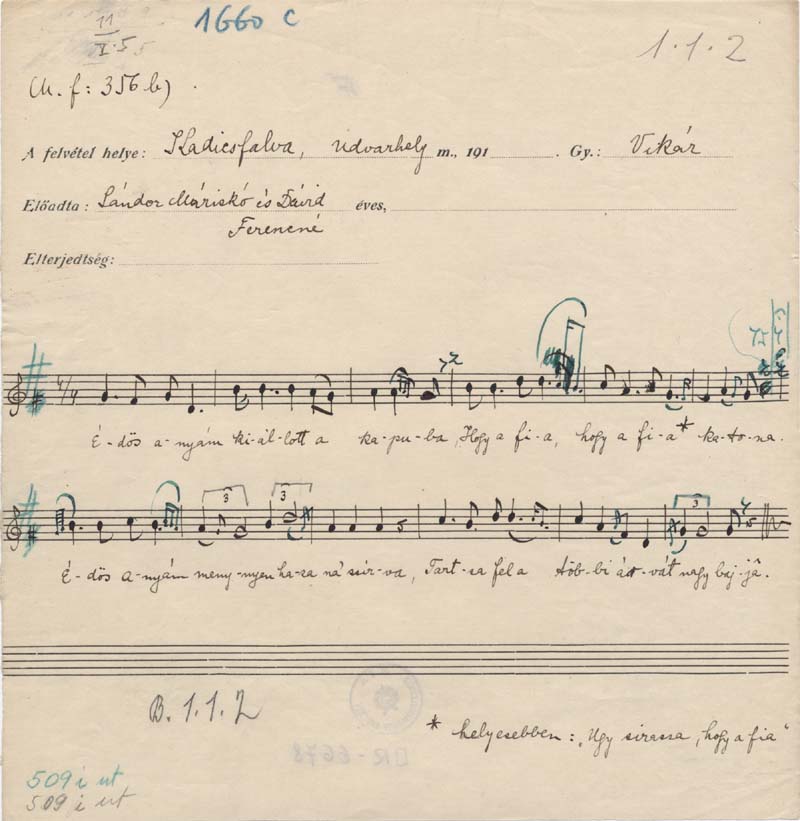 11
I. 5
1660 c
1.1.2
M. f: 356 b)
A felvétel helye: Kadicsfalva, Udvarhely m., 191 . Gy.: Vikár
Előadta: Sándor Máriskó és Dávid éves,
Ferencné
Elterjedtség:
É-dös a-nyám ki-ál-lott a ka-pu-ba, Hogy a fi-a, hogy a fi-a* ka-to-na.
3 3
É-dös a-nyám meny-nyen ha-za ná' ssír-va, Tart-sa fel a töb-bi át-vát nagy baj-jâ.
3
B. 1.1.2
* helyesebben: „Ugy sirassa, hogy a fia"
DR-6678
509 i ut
509 i ut